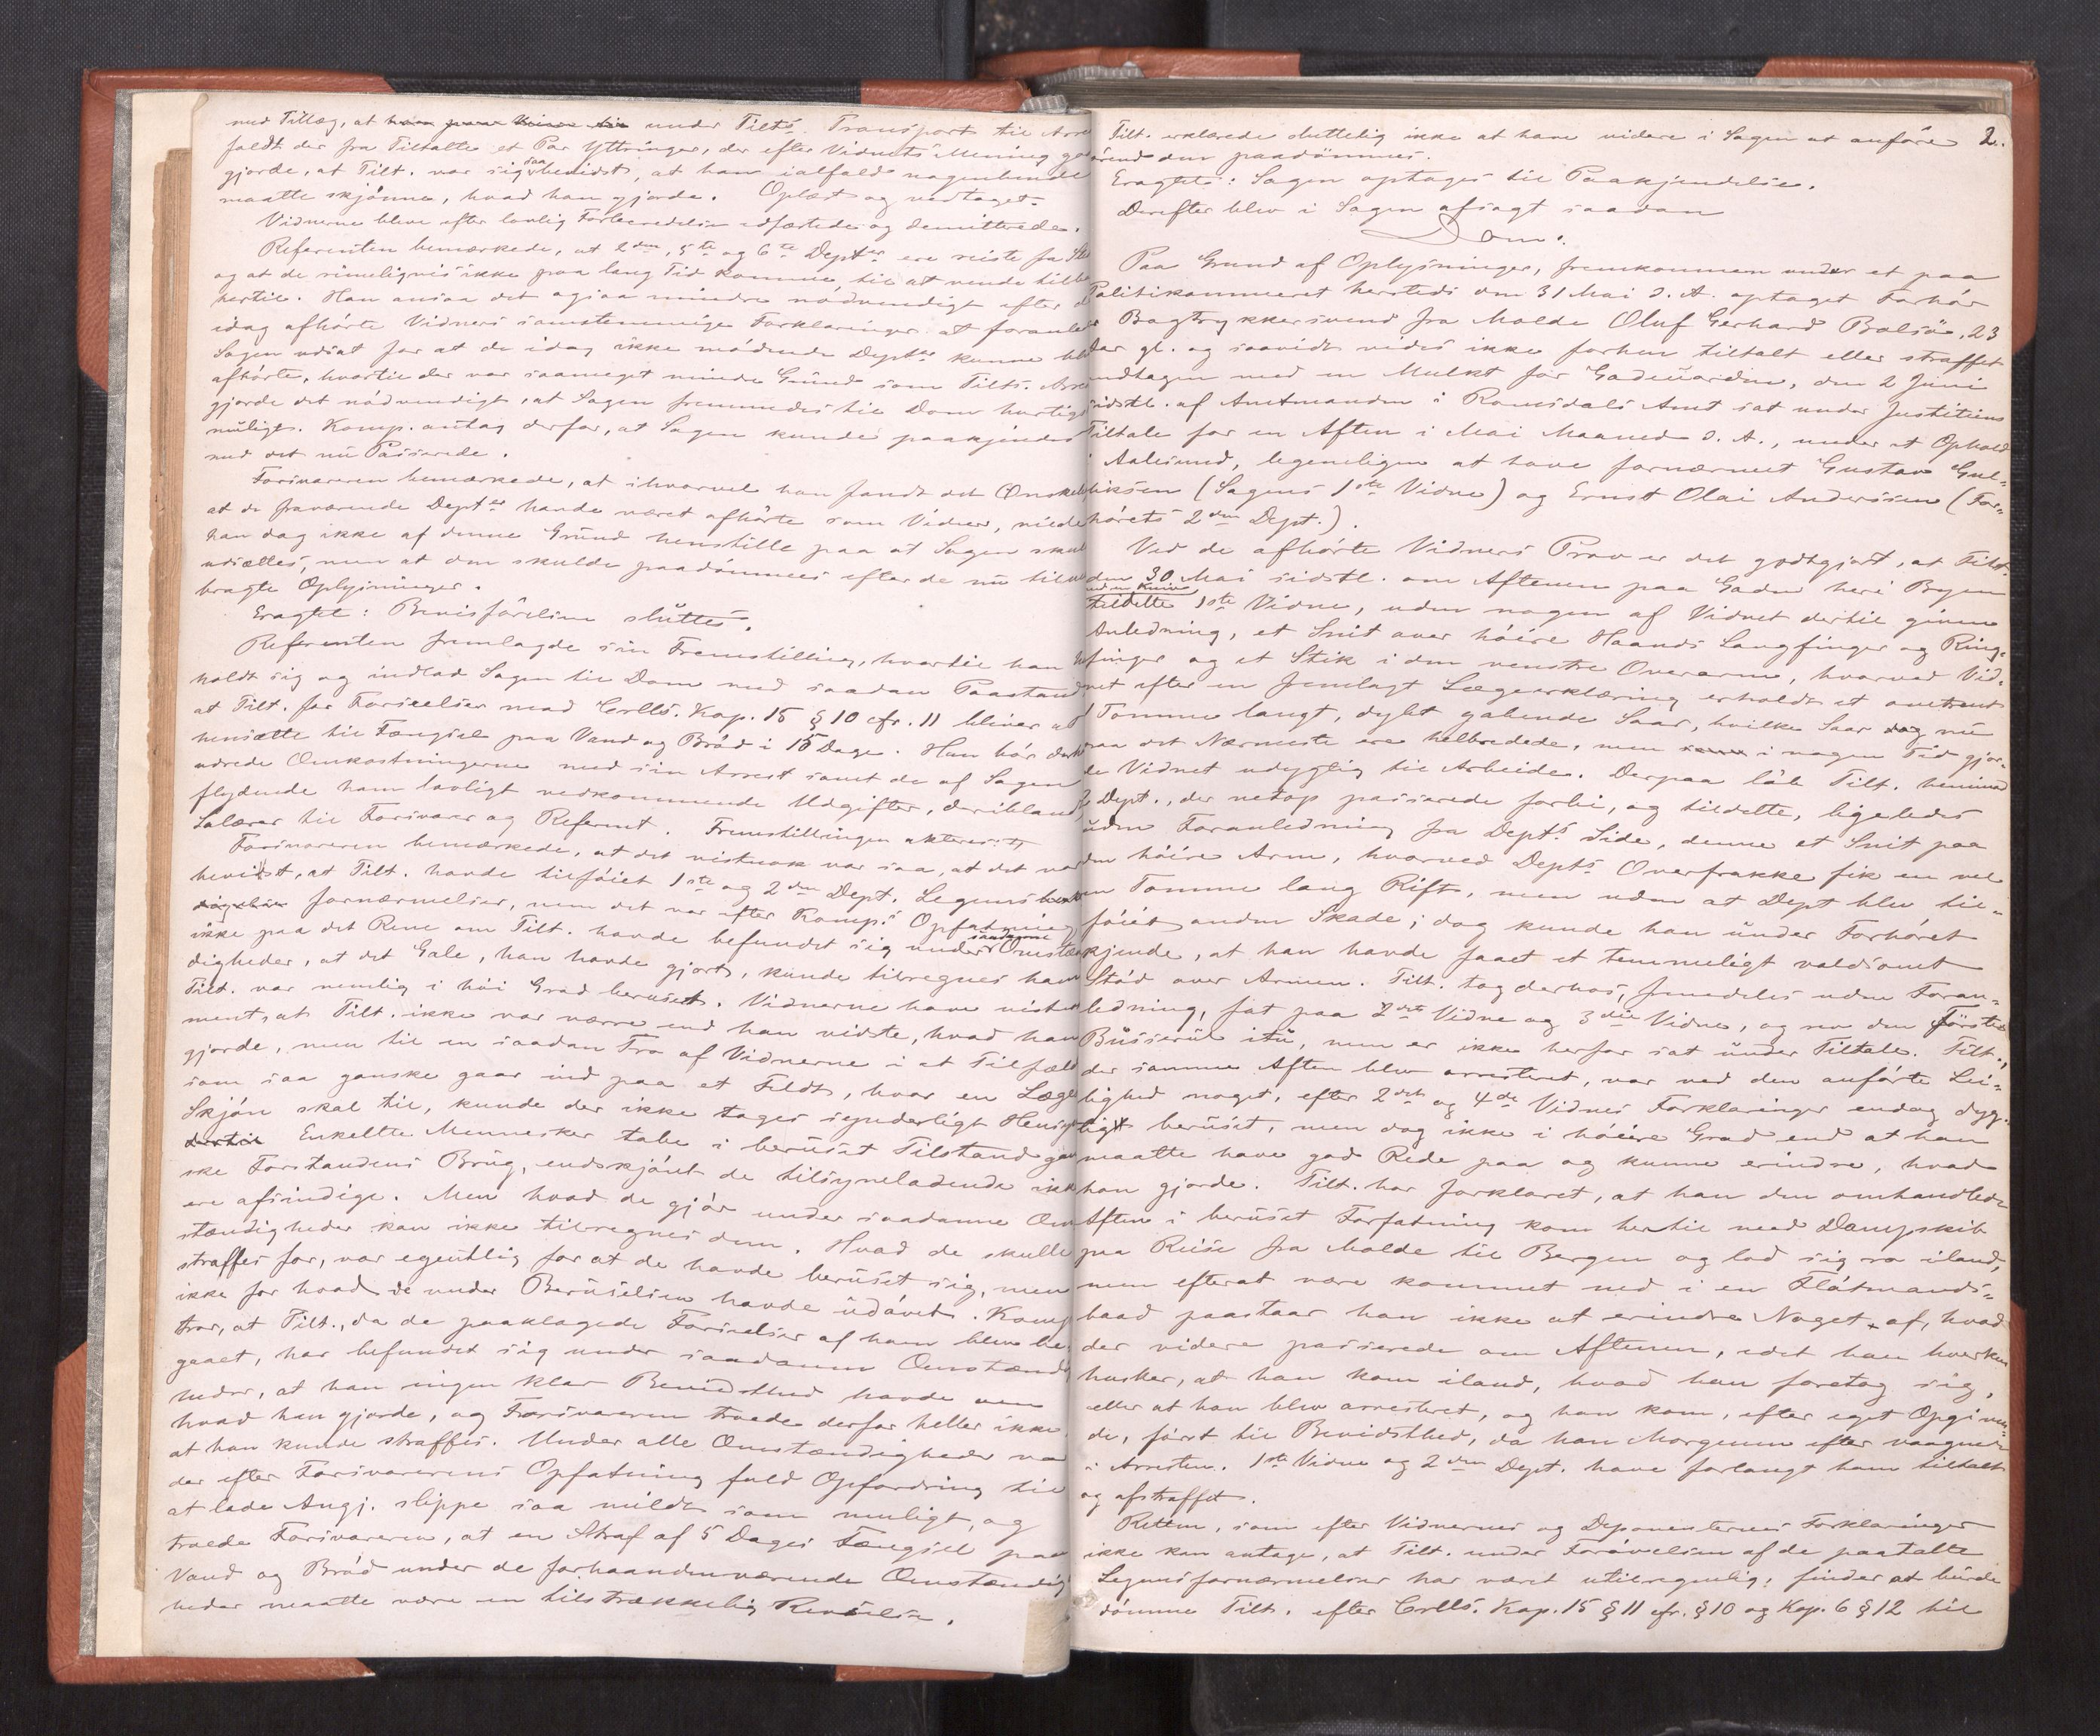 med Tillæg, at ham paa Veien til under Tilts. Transport til Arre
faldt der fra Tiltalte et Par Yttringer, der efter Vidnets Mening go
gjorde, at Tilt. var sig saa bevidst, at han ialfald nogenlunde
maatte skjønne, hvad han gjorde. Oplæst og vedtaget.
Vidnerne bleve efter lovlig Forberedelse edfæstede og demitterede.
Referenten bemærkede, at 2den, 5te og 6te Deptes ere reiste fra
og at de rimeligvis ikke paa lang Tid komme til at vende tilba
hertil. Han ansaa det ogsaa mindre nødvendigt efter d
idag afhørte Vidners samstemmige Forklaringer at foranle
Sagen udsat for at de idag ikke mødende Deptes kunne bli
afhørte, hvortil der var saameget mindre Grund som Tilts. Arre
gjorde det nødvendigt, at Sagen fremmedes til Dom hurtigs
muligt. Komp. antog derfor, at Sagen kunde paakjendes
med det nu Passerede.
Forsvareren bemærkede, at ihvorvel han fandt det Ønskeli
at de fraværende Deptes havde været afhørte som Vidner, vilde
han dog ikke af denne Grund henstille paa at Sagen skul
udsættes, men at den skulde paadømmes efter de nu tilve
bragte Oplysninger.
Eragtet: Bevisførelsen sluttes.
Referenten fremlagde sin Fremstilling, hvortil han h
holdt sig og indlod Sagen til Dom med saadan Paastand
at Tilt. for Forseelser mod Crlls. Kap. 15 § 10 cfr. 11 bliver at
hensætte til Fængsel paa Vand og Brød i 15 Dage. Han bør derh
udrede Omkostningerne med sin Arrest samt de af Sagen
flydende ham lovligt vedkommende Udgifter, deriblandt
Salærer til Forsvarer og Referent. Fremstillingen akteres
Forsvareren bemærkede, at det vistnok var saa, at det var
bevidst, at Tilt. havde tilføiet 1ste og 2den Dept. Legems
fornærmelser, men det var efter Komp.s Opfatning
ikke paa det Rene om Tilt. havde befundet sig under saadanne Omstæn
digheder, at det Gale, han havde gjort, kunde tilregnes ham
Tilt. var nemlig i høi Grad beruset. Vidnerne have vistnok
ment, at Tilt. ikke var værre end han vidste, hvad han
gjorde, men til en saadan Tro af Vidnerne i et Tilfælde
som saa ganske gaar ind paa et Feldt, hvor en Læges
Skjøn skal til, kunde der ikke tages synderligt Hensyn
dertil Enkeltte Mennesker tabe i beruset Tilstand gan
ske Forstandens Brug, endskjønt de tilsyneladende ikke
ere afsindige. Men hvad de gjør under saadanne Om
stændigheder kan ikke tilregnes dem. Hvad de skulle
straffes for, var egentlig for at de havde beruset sig, men
ikke for hvad de under Beruselsen havde udøvet. Komp
tror, at Tilt., da de paaklagede Forseelser af ham blev be
gaaet, har befundet sig under saadanne Omstændig
heder, at han ingen klar Bevidsthed havde om
hvad han gjorde, og Forsvareren troede derfor heller ikke
at han kunde straffes. Under alle Omstændigheder var
der efter Forsvarerens Opfatning fuld Opfordring til
at lade Angj. slippe saa mildt som muligt, og
troede Forsvareren, at en Straf af 5 Dages Fængsel paa
Vand og Brød under de forhaandenværende Omstændig
heder maatte være en tilstrækkelig Revselse.
2.
Tilt. erklærede sluttelig ikke at have videre i Sagen at anføre
den paadømmes.
Eragtet: Sagen optages til Paakjendelse.
Derefter blev i Sagen afsagt saadan
Dom:
Paa Grund af Oplysninger, fremkommen under et paa
Politikammeret hersteds den 31 Mai d. A. optaget Forhør
Bogtrykkersvend fra Molde Oluf Gerhard Bolsø, 23
Aar gl. og saavidt vides ikke forhen tiltalt eller straffet
undtagen med en Mulkt for Gadeuorden, den 2 Juni
sidstl. af Amtmanden i Romsdals Amt sat under Justitiens
Tiltale for en Aften i Mai Maaned d. A., under et Ophold
i Aalesund, legemligen at have fornærmet Gustav Gul-
liksen (Sagens 1ste Vidne) og Ernst Olai Anderssen (For-
hørets 2den Dept.).
Ved de afhørte Vidners Prov er det godtgjort, at Tilt.
den 30 Mai sidstl. om Aftenen paa Gaden heri Byen
med en Kniv
tildelte 1ste Vidne, uden nogen af Vidnet dertil given
Anledning, et Snit over høire Haands Langfinger og Ring-
finger og et Stik i den venstre Overarm, hvorved Vid-
net efter en fremlagt Lægeerklæring erholdt et omtrent
1 Tomme langt, dybt gabende Saar, hvilke Saar dog nu
paa det Nærmeste ere helbredede, men i nogen Tid gjor-
de Vidnet udygtig til Arbeide. Derpaa løb Tilt. henimod
2 Dept., der netop passerede forbi, og tildelte, ligeledes
uden Foranledning fra Depts. Side, denne et Snit paa
den høire Arm, hvorved Depts Overfrakke fik en vel
en Tomme lang Rift, men uden at Dept blev til-
føiet anden Skade; dog kunde han under Forhøret
kjende, at han havde faaet et temmeligt voldsomt
Stød over Armen. Tilt. tog derhos, fremdeles uden Foran-
ledning, fat paa 2det Vidne og 3die Vidne, og rev den Førstes
Busserul itu, men er ikke herfor sat under Tiltale. Tilt.,
der samme Aften blev arresteret, var ved den anførte Lei-
lighed noget, efter 2det og 4de Vidnes Forklaringer endog dyg-
tigt beruset, men dog ikke i høiere Grad end at han
maatte have god Rede paa og kunne erindre, hvad
han gjorde. Tilt. har forklaret, at han den omhandlede
Aften i beruset Forfatning kom hertil med Dampskib
paa Reise fra Molde til Bergen og lod sig ro iland,
men efterat være kommet ned i en Fløtmands-
baad paastaar han ikke at erindre Noget af, hvad
der videre passerede om Aftenen, idet han hverken
husker, at han kom iland, hvad han foretog sig,
eller at han blev arresteret, og han kom, efter eget Opgiven-
de, først til Bevidsthed, da han Morgenen efter vaagnede
i Arresten. 1ste Vidne og 2den Dept. have forlangt ham tiltalt
og afstraffet.
Retten, som efter Vidnernes og Deponenternes Forklaringer
ikke kan antage, at Tilt. under Forøvelsen af de paatalte
Legemsfornærmelser har været utilregnelig, finder at burde
dømme Tilt. efter Crlls. Kap. 15 § 11 cfr. § 10 og Kap. 6 § 12 til